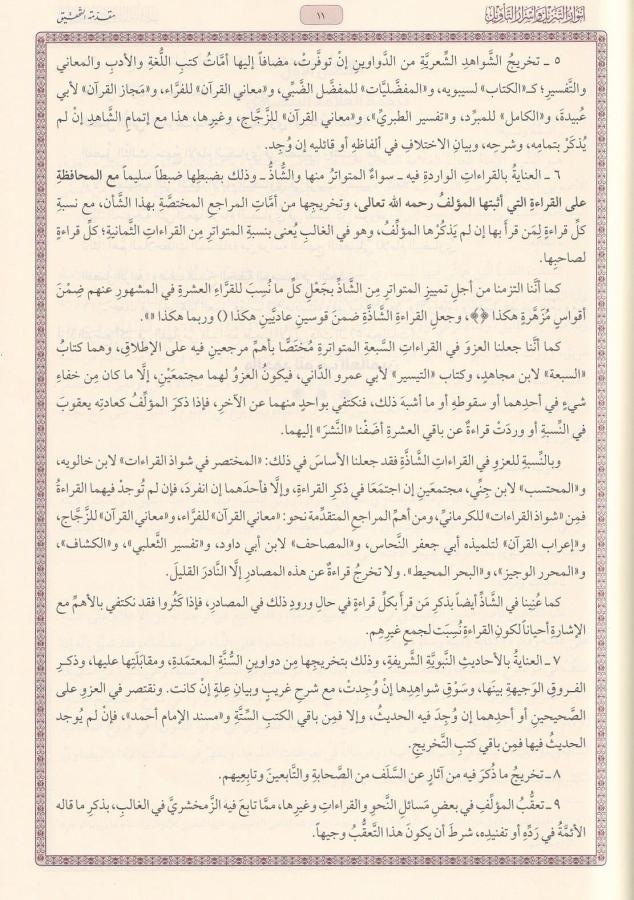 أنوار التنزيل وأسرار التأويل
١١
مقدمة التحقيق
٥ ـ تخريجُ الشَّواهدِ الشِّعريَّةِ من الدَّواوينِ إنْ توفَّرتْ، مضافاً إليها أمَّاتُ كتبِ اللُّغةِ والأدبِ والمعاني
والتَّفسيرِ؛ كـ«الكتاب» لسيبويه، و«المفضَّليَّات» للمفضَّل الضَّبِّي، و«معاني القرآن» للفرَّاء، و«مَجاز القرآن» لأبي
عُبيدةَ، و«الكامل» للمبرِّد، و«تفسير الطبريِّ»، و«معاني القرآن» للزَّجَّاج، وغيرِها، هذا مع إتمامِ الشَّاهدِ إنْ لم
يُذكَرْ بتمامِه، وشرحِه، وبيانِ الاختلافِ في ألفاظِه أو قائليه إن وُجِد.
٦ ـ العنايةُ بالقراءاتِ الواردةِ فيه ـ سواءٌ المتواترُ منها والشَّاذُّ ـ وذلك بضبطِها ضبطاً سليماً مع المحافظةِ
على القراءةِ التي أثبتها المؤلفُ رحمه الله تعالى، وتخريجِها من أمَّاتِ المراجعِ المختصَّةِ بهذا الشَّأن، مع نسبةِ
كلِّ قراءةٍ لِمَن قرأَ بها إن لم يَذكُرْها المؤلِّفُ، وهو في الغالبِ يُعنى بنسبةِ المتواترِ مِن القراءاتِ الثَّمانية؛ كلُّ قراءةٍ
لصاحبِها.
كما أنَّنا التزمنا من أجلِ تمييزِ المتواترِ مِن الشَّاذِّ بجَعْلِ كلِّ ما نُسِبَ للقرَّاءِ العشرةِ في المشهورِ عنهم ضِمْنَ
أقواسٍ مُزَهَّرةٍ هكذا ﴿﴾، وجعلِ القراءةِ الشَّاذَّةِ ضمنَ قوسينِ عاديَّينِ هكذا () وربما هكذا «».
كما أنَّنا جعلنا العزوَ في القراءاتِ السَّبعةِ المتواترةِ مُختَصًّا بأهمِّ مرجعينِ فيه على الإطلاقِ، وهما كتابُ
«السبعة» لابن مجاهدٍ، وكتاب «التيسير» لأبي عمرو الدَّاني، فيكونُ العزوُ لهما مجتمعَيْنِ، إلَّا ما كان مِن خفاءِ
شيءٍ في أحدِهما أو سقوطِه أو ما أشبهَ ذلك، فنكتفي بواحدٍ منهما عن الآخرِ، فإذا ذكرَ المؤلِّفُ كعادتِه يعقوبَ
في النِّسبةِ أو وردَتْ قراءةٌ عن باقي العشرةِ أضَفْنا «النَّشرَ» إليهما.
وبالنِّسبةِ للعزوِ في القراءاتِ الشَّاذَّةِ فقد جعلنا الأساسَ في ذلك: «المختصر في شواذ القراءات» لابن خالويه،
و«المحتسب» لابن جِنِّي، مجتمعَينِ إن اجتمَعَا في ذكرِ القراءةِ، وإلَّا فأحدَهما إن انفردَ، فإن لم تُوجدْ فيهما القراءةُ
فمِن «شواذ القراءات» للكرمانيِّ، ومن أهمِّ المراجعِ المتقدِّمة نحو: «معاني القرآن» للفرَّاء، و«معاني القرآن» للزَّجَّاج،
و«إعراب القرآن» لتلميذه أبي جعفر النَّحاس، و«المصاحف» لابن أبي داود، و«تفسير الثَّعلبي»، و«الكشاف»،
و«المحرر الوجيز»، و«البحر المحيط». ولا تخرجُ قراءةٌ عن هذه المصادرِ إلَّا النَّادرَ القليلَ.
كما عُنِينا في الشَّاذِّ أيضاً بذكرِ مَن قرأَ بكلِّ قراءةٍ في حالِ ورودِ ذلك في المصادرِ، فإذا كَثُروا فقد نكتفي بالأهمِّ مع
الإشارةِ أحياناً لكونِ القراءةِ نُسِبَت لجمعٍ غيرِهِم.
٧ ـ العنايةُ بالأحاديثِ النَّبويَّةِ الشَّريفةِ، وذلك بتخريجِها مِن دواوينِ السُّنَّةِ المعتمَدةِ، ومقابَلَتِها عليها، وذكرِ
الفروقِ الوَجيهةِ بينَها، وسَوْقِ شواهدِها إنْ وُجِدتْ، مع شرحِ غريبٍ وبيانِ عِلةٍ إنْ كانت. ونقتصر في العزوِ على
الصَّحيحينِ أو أحدِهما إن وُجِدَ فيه الحديثُ، وإلا فمِن باقي الكتبِ السِّتَّةِ و«مسند الإمام أحمد»، فإنْ لم يُوجد
الحديثُ فيها فمِن باقي كتبِ التَّخريجِ.
٨ ـ تخريجُ ما ذُكرَ فيه من آثارٍ عن السَّلَفِ من الصَّحابةِ والتَّابعينَ وتابعِيهم.
٩ ـ تعقُّبُ المؤلِّفِ في بعضِ مَسائلِ النَّحوِ والقراءاتِ وغيرِها، ممَّا تابعَ فيه الزَّمخشريَّ في الغالبِ، بذكرِ ما قاله
الأئمَّةُ في رَدِّهِ أو تفنيدِه، شرطَ أن يكونَ هذا التَّعقُّبُ وجيهاً.